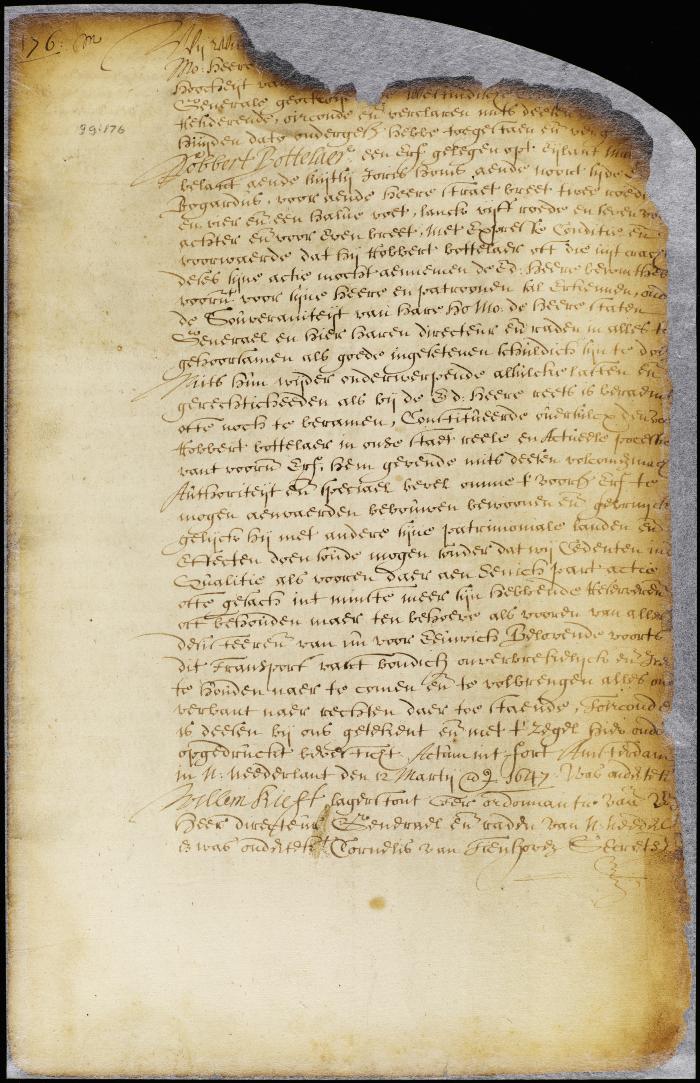 76:
Wij Wille
Mo: Heere
hoocheijt van Westindische
Generale geoctroij
Residerende, oirconde en verclaren mits deesen
huijden dato ondergesz hebbe toegestaen en
Robbert Bottelaer, een Erf gelegen opt Eijlant
belast aende suijtsij Joris homs aende noort sijde
Bogardus, voor aende heere straet breet twee roede
en vier en een halve voet, lanck vijft roede en seven
achter en voor Even breet, Met Expresse Conditie en
voorwaerde dat hij Robbert bottelaer oft die uijt crag
deses sijne actie mocht aennemen de Ed: Heere bewinthebb
voorn voor sijne heere en patroonen sal Erkennen, ond
de Souveraniteijt van hare Ho Mo: de Heere Staten
Generael en hier haren directeur en raden in alles te
gehoorsamen als goede ingesetenen schuldich sijn te doe
Mits hun wijder onderwerpende alsulcke lasten en
gerechticheeden als bij de Ed: Heere reets is beraemt
ofte noch te beramen, Constitueerde oversulcx den
Robbert bottelaer in onse staet reele en Actueele possessie
vant voorn Erf, hem gevende mits deesen volcomen
Authoriteijt en speciael bevel omme t' voorsz Erf te
mogen aenvaerden bebouwen bewoonen en gebruijck
gelijck hij met andere sijne patrimoniale landen en
Effecten doen soude mogen sonder dat wij Cedenten in
Qualitie als vooren daer aen Eenich part actie
ofte gesach int minste meer sijn hebbende Reserveren
oft behouden maer ten behoeve als vooren van alles
desisteeren van nu voor Eeuwich, Belovende voorts
dit Transport vast bondich onverbreckelijck en
te houden naer te comen en te volbrengen alles ond
verbant naer rechten daer toe staende, Toirconde
is deesen bij ons geteekent en met t' Zegel hier onde
opgedruckt bevesticht. Actum int fort Amsterdam
in N: Neederlant den 12 Martij Ao 1647 Was onderteke
Willem Kieft lager stont Ter ordonnantie van
Heer directeur Generael en raden van N: Neederl
is was onderteket Cornelis van Tienhoven Secrets
99:176